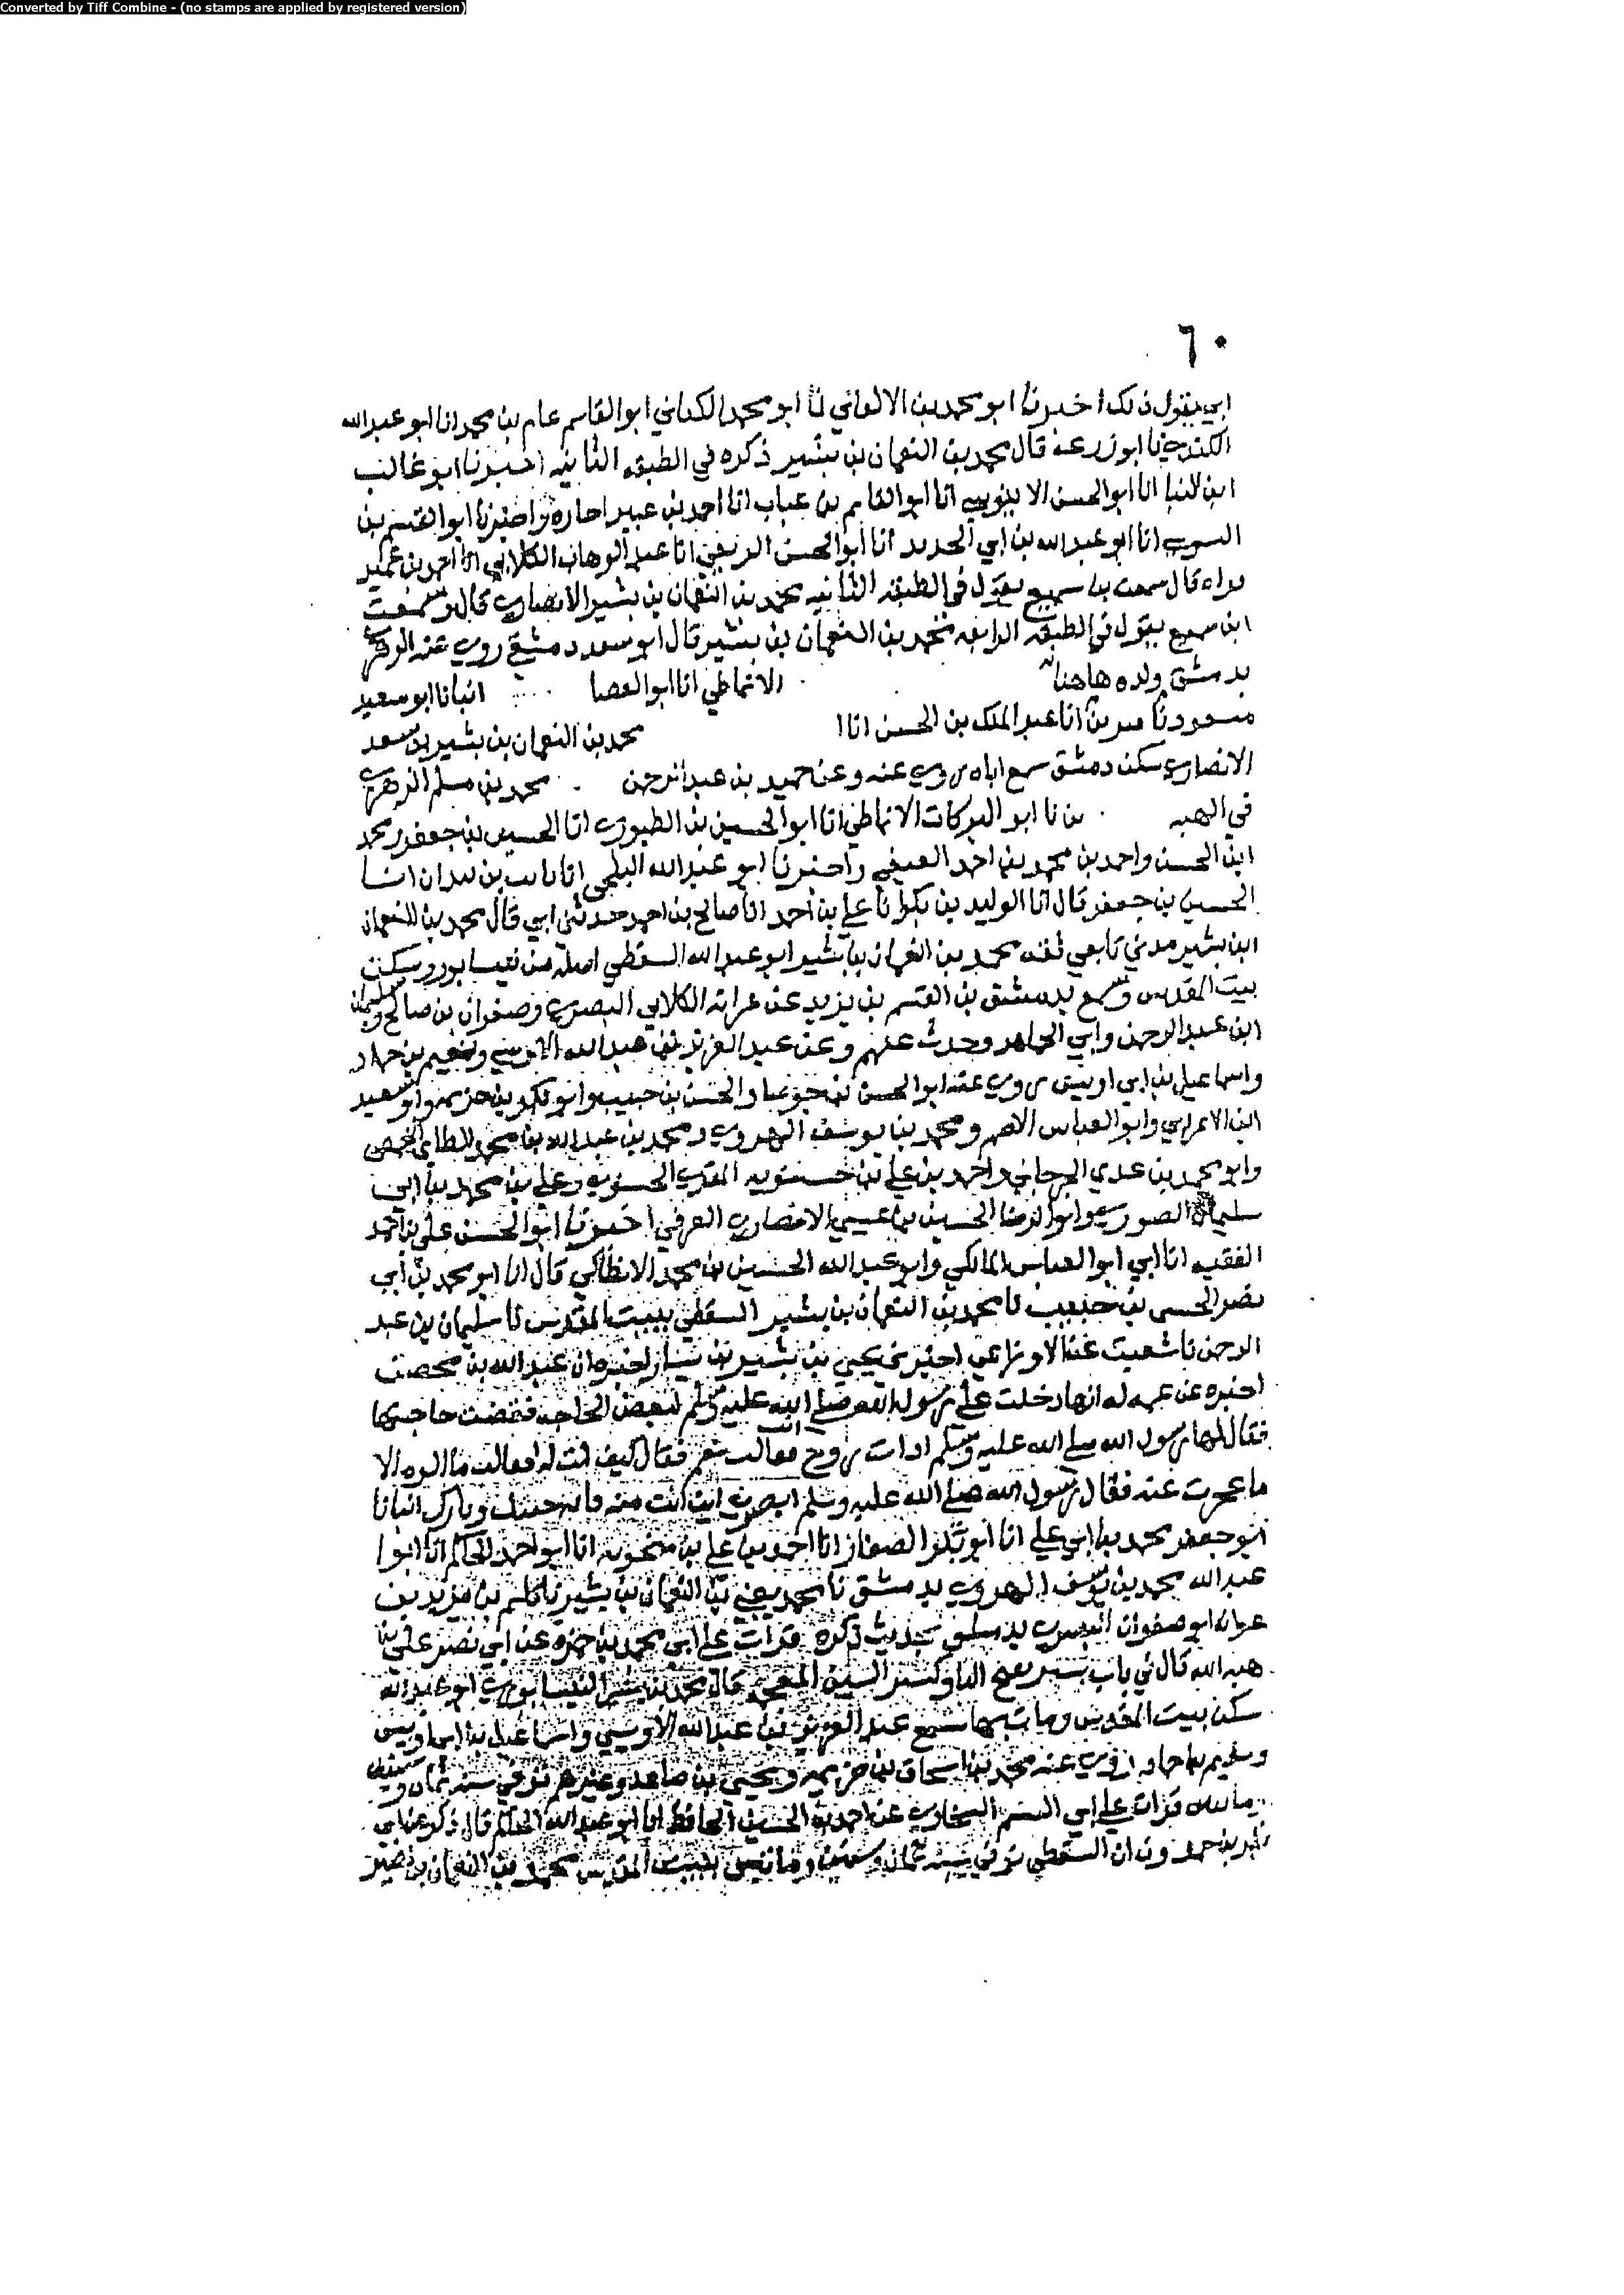 Converted by Tiff Combine - (no stamps are applied by registered version)
٦٠
ابي يقول ذلك اخبرنا ابو محمد بن الاكفاني نا ابو محمد الكناني ابو القاسم عام بن محمد انا ابو عبد الله
الكندي نا ابو زرعه قال محمد بن النعمان بن بشير ذكره في الطبقه الثانيه اخبرنا ابو غالب
ابن البنا انا ابو الحسن الابنوسي انا ابو القاسم بن عباب انا احمد بن عمير اجازه واخبرنا ابو القسم بن
السوسي انا ابو عبد الله بن ابي الحديد انا ابو الحسن الربعي انا عبد الوهاب الكلابي انا احمد بن عمير
قراه قال سمعت بن سميع يقول في الطبقه الثانيه محمد بن النعمان بن بشير الانصاري قال وسمعت
ابن سميع يقول في الطبقه الرابعه محمد بن النعمان بن بشير قال ابو سعيد دمشقي روى عنه الزهري
بدمشق ولده هاهنا الانماطي انا ابو الفضا انبانا ابو سعيد
مسعود بن انا عبد الملك بن الحسن انا ا محمد بن النعمان بن بشير بن سعد
الانصاري سكن دمشق سمع اباه روى عنه وعن حميد بن عبد الرحمن محمد بن مسلم الزهري
في الهبه نا ابو البركات الانماطي انا ابو الحسين بن الطيوري انا الحسين بن جعفر ومحمد
ابن الحسن واحمد بن محمد بن احمد العتيقي واخبرنا ابو عبد الله البلخي انا ثابت بن بندار انا
الحسين بن جعفر قال انا الوليد بن بكر انا علي بن احمد انا صالح بن احمد حدثني ابي قال محمد بن النعمان
ابن بشير مدني تابعي ثقه محمد بن النعمان بن بشير ابو عبد الله السقطي اصله من نيسابور وسكن
بيت المقدس وسمع بدمشق بن القسم بن يزيد عن عرانه الكلابي البصري وصفوان بن صالح وسليمان
ابن عبد الرحمن وابي الجماهر وحدث عنهم وعن عبد العزيز بن عبد الله الاويسي ونعيم بن حماد
واسماعيل بن ابي اويس روى عنه ابو الحسن بن جوصا والحسن بن حبيب وابو بكر بن خزيمه وابو سعيد
ابن الاعرابي وابو العباس الاصم ومحمد بن يوسف الهروي ومحمد بن عبد الله بن محمد الطاي الحمصي
وابو محمد بن عدي الجرجاني واحمد بن علي بن حسنويه المقري الحسنويي وعلي بن محمد بن ابي
سليمان الصوري وابو الرضا الحسين بن عيسى الانصاري العرقي اخبرنا ابو الحسن علي بن احمد
الفقيه انا ابي ابو العباس المالكي وابو عبد الله الحسين بن محمد الانطاكي قال انا ابو محمد بن ابي
نصر الحسن بن حبيب نا محمد بن النعمان بن بشير السقطي ببيت المقدس نا سليمان بن عبد
الرحمن نا شعيب عن الاوزاعي اخبرني يحيى بن بشير بن يسار اخبره ان عبد الله بن محصن
اخبره عن عمه له انها دخلت على رسول الله صلى الله عليه وسلم لبعض الحاجه فقضت حاجتها
فقال لها رسول الله صلى الله عليه وسلم اذات زوج انت فقالت نعم فقال كيف انت له فقالت ما الوه الا
ما عجزت عنه فقال رسول الله صلى الله عليه وسلم ابصري اين انت منه فانه جنتك ونارك انبانا
ابو جعفر محمد بن ابي علي انا ابو بكر الصفار انا احمد بن علي بن منجويه انا ابو احمد الحاكم انا ابو
عبد الله محمد بن يوسف الهروي بدمشق نا محمد يعني بن النعمان بن بشير نا قاسم بن مزيد بن
عرانه ابو صفوان البصري بدمشق بحديث ذكره قرات على ابي محمد بن حمزه عن ابي نصر علي بن
هبه الله قال في باب بشير بفتح البا وكسر الشين المعجمه قال محمد بن بشير النيسابوري ابو عبد الله
سكن بيت المقدس ومات بها سمع عبد العزيز بن عبد الله الاويسي واسماعيل بن ابي اويس
ونعيم بن حماد روى عنه محمد بن اسحاق بن خزيمه ويحيى بن صاعد وغيرهم توفي سنه ثمان وستين
ومايتين قرات على ابي القسم الشحامي عن احمد بن الحسين الحافظ انا ابو عبد الله الحاكم قال ذكر عن ابي
بن حمدون ان السقطي توفي سنه ثمان وستين ومايتين ببيت المقدس محمد بن النعمان بن نصير